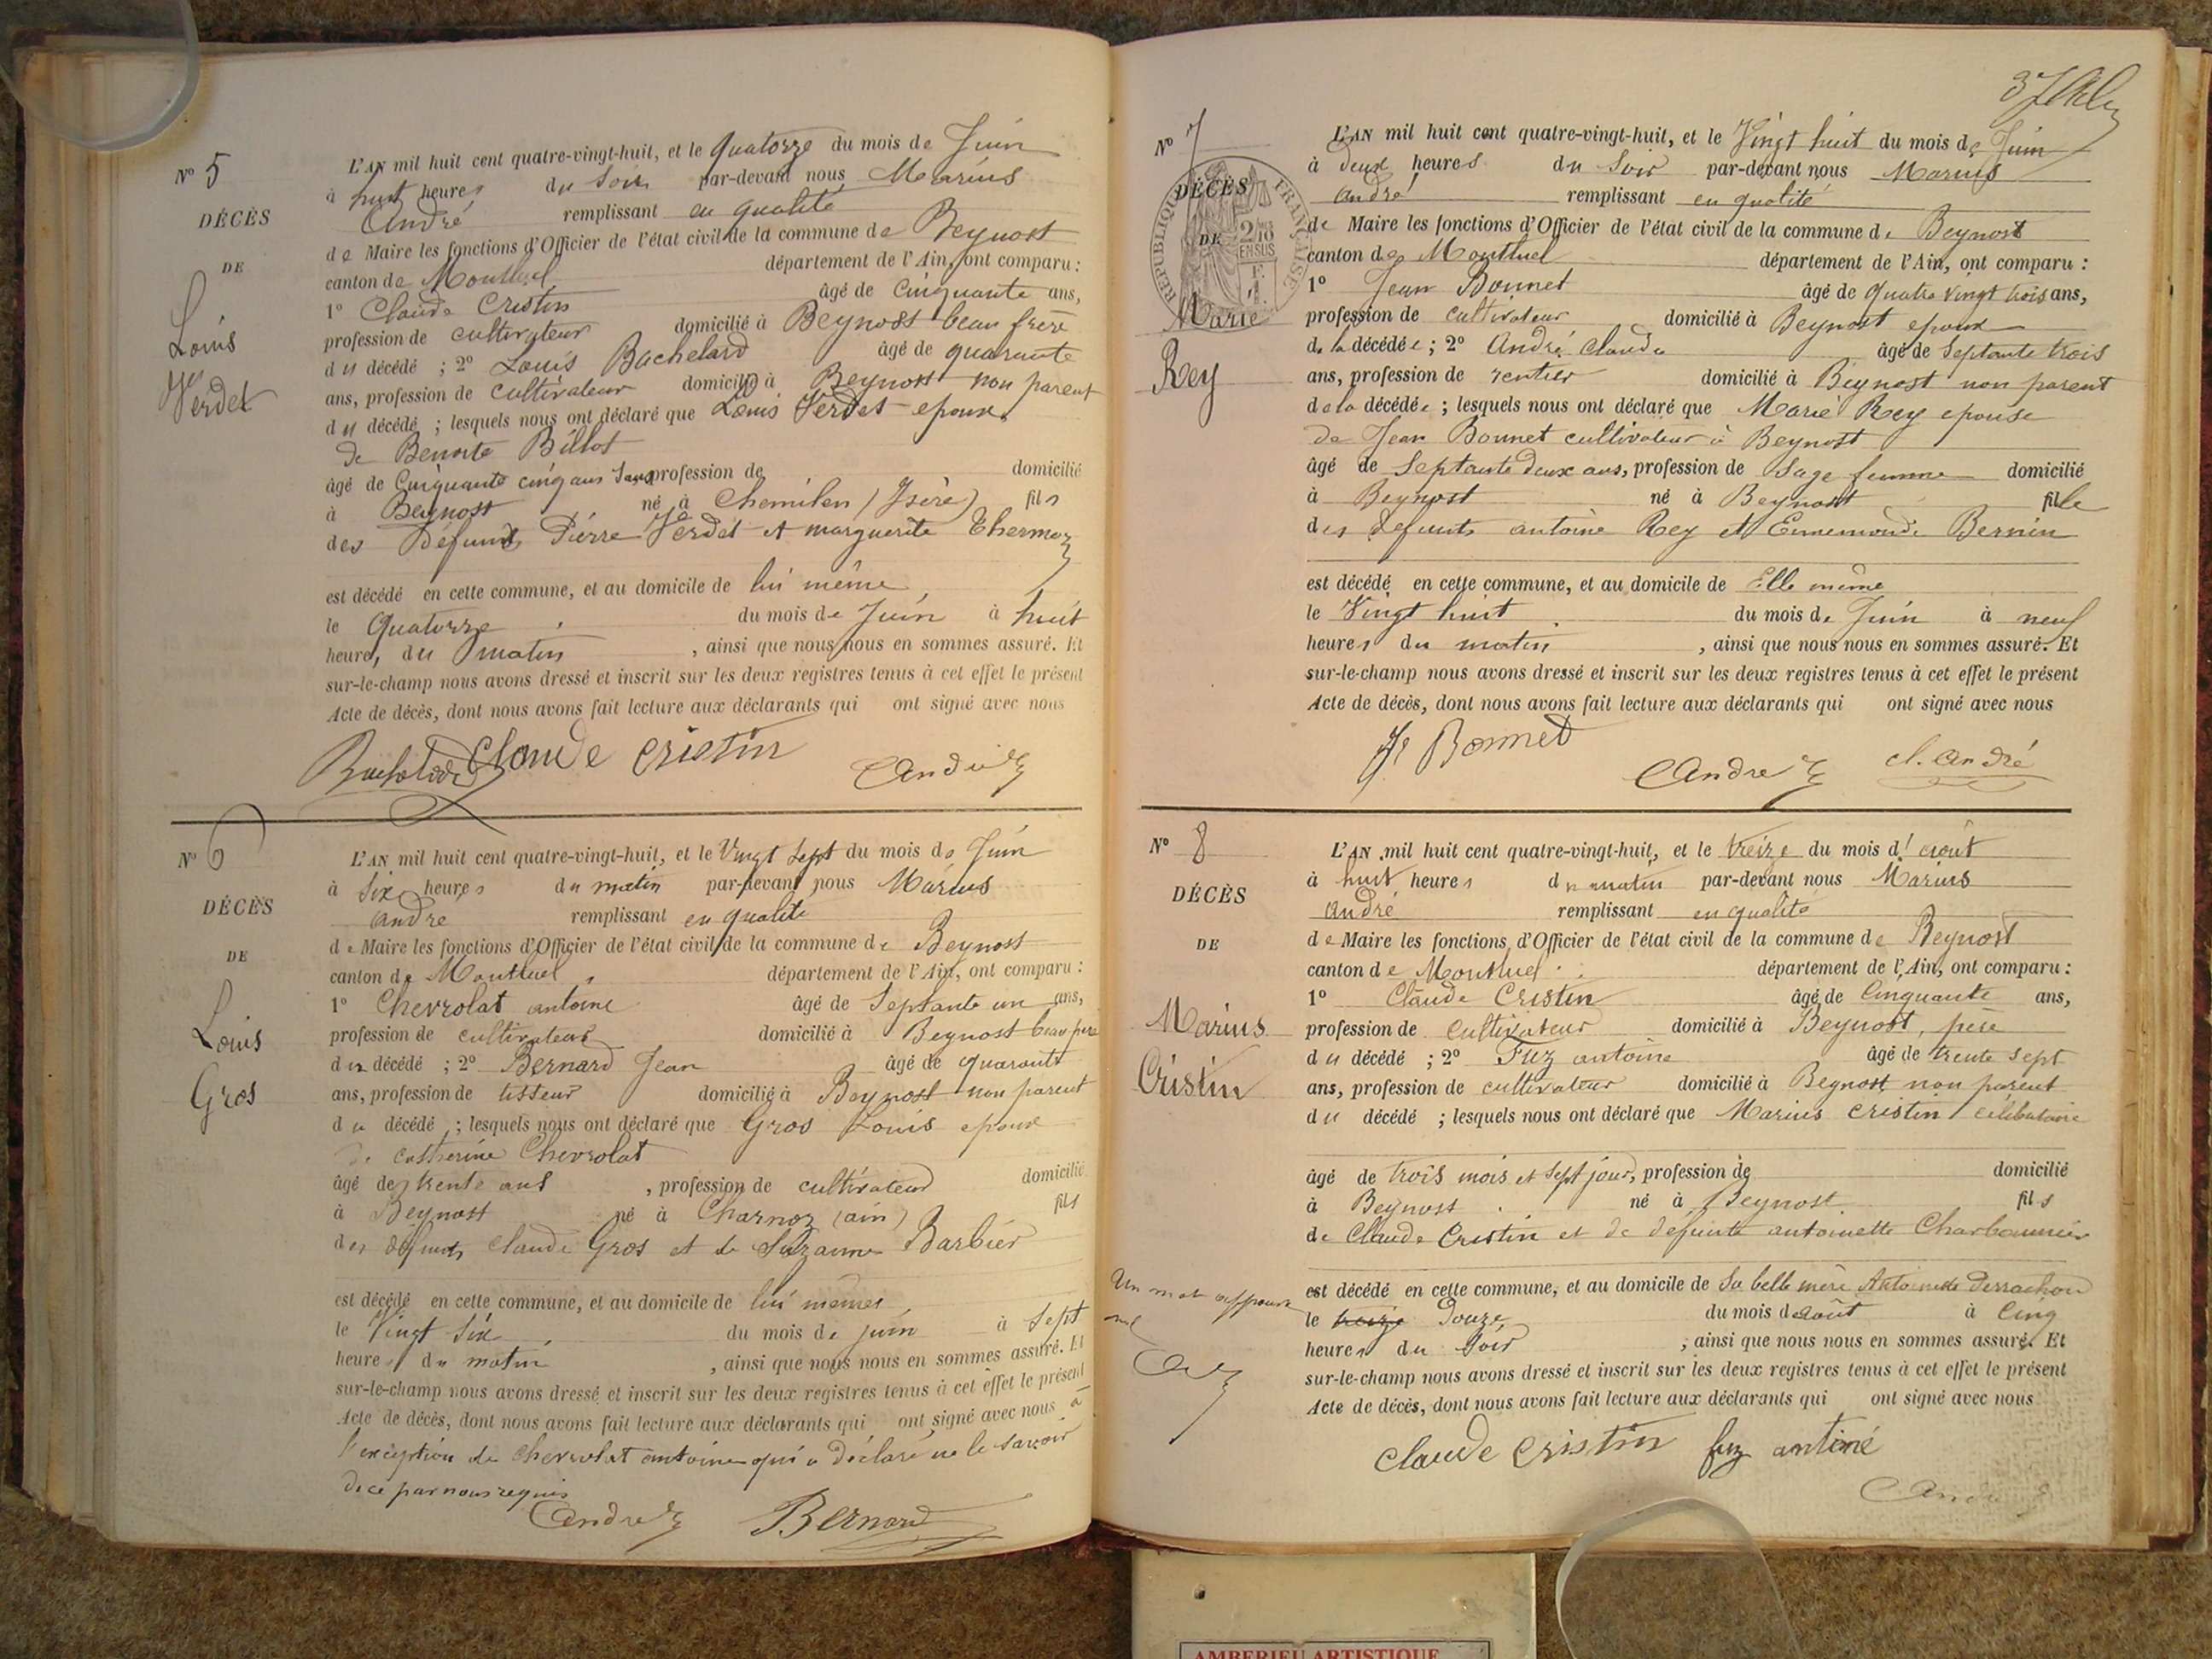 N° 5
DÉCÈS
DE
Louis
Verdet
L'AN mil huit cent quatre-vingt-huit, et le quatorze du mois de Juin
à huit heures du soir par-devant nous Marius
André remplissant en qualité
de Maire les fonctions d'Officier de l'état civil de la commune de Beynost
canton de Montluel département de l'Ain, ont comparu :
1° Claude Cristin âgé de Cinquante ans,
profession de cultivateur domicilié à Beynost beau frère
du décédé ; 2° Louis Bachelard âgé de quarante
ans, profession de cultivateur domicilié à Beynost non parent
du décédé ; lesquels nous ont déclaré que Louis Verdet epoux
de Benoite Billot
âgé de Cinquante cinq ans Sans profession de domicilié
à Beynost né à Chemilen (Isère) fils
des Défunts Pierre Verdet et marguerite Thermoz
est décédé en cette commune, et au domicile de lui même
le Quatorze du mois de Juin à huit
heures du matin , ainsi que nous nous en sommes assuré. Et
sur-le-champ nous avons dressé et inscrit sur les deux registres tenus à cet effet le présent
Acte de décès, dont nous avons fait lecture aux déclarants qui ont signé avec nous
Bachelard Claude Cristin André
N° 6
DÉCÈS
DE
Louis
Gros
L'AN mil huit cent quatre-vingt-huit, et le Vingt sept du mois de Juin
à Six heures du matin par-devant nous Marius
André remplissant en qualité
de Maire les fonctions d'Officier de l'état civil de la commune de Beynost
canton de Montluel département de l'Ain, ont comparu :
1° Chevrolat antoine âgé de Septante un ans,
profession de cultivateur domicilié à Beynost beau père
du décédé ; 2° Bernard Jean âgé de quarante
ans, profession de tisseur domicilié à Beynost non parent
du décédé ; lesquels nous ont déclaré que Gros Louis epoux
de catherine Chevrolat
âgé de trente ans , profession de cultivateur domicilié
à Beynost né à Charnoz (ain) fils
des défunts Claude Gros et de Suzanne Barbier
est décédé en cette commune, et au domicile de lui memes
le Vingt Six du mois de juin à Sept
heures du matin , ainsi que nous nous en sommes assuré. Et
sur-le-champ nous avons dressé et inscrit sur les deux registres tenus à cet effet le présent
Acte de décès, dont nous avons fait lecture aux déclarants qui ont signé avec nous à
l'exception de Chevrolat antoine qui a déclaré ne le savoir
de ce par nous requis
André Bernard
N° 7
DÉCÈS
DE
RÉPUBLIQUE FRANÇAISE
2/10 EN SUS
Marie
Rey
L'AN mil huit cent quatre-vingt-huit, et le Vingt huit du mois de Juin
à deux heures du soir par-devant nous Marius
André remplissant en qualité
de Maire les fonctions d'Officier de l'état civil de la commune de Beynost
canton de Montluel département de l'Ain, ont comparu :
1° Jean Bonnet âgé de quatre vingt trois ans,
profession de cultivateur domicilié à Beynost epoux
de la décédée ; 2° André Claude âgé de Septante trois
ans, profession de rentier domicilié à Beynost non parent
de la décédée ; lesquels nous ont déclaré que Marie Rey epouse
de Jean Bonnet cultivateur à Beynost
âgé de Septante deux ans, profession de Sage femme domicilié
à Beynost né à Beynost fille
des defunts antoine Rey et Ennemonde Bernin
est décédé en cette commune, et au domicile de Elle même
le Vingt huit du mois de Juin à neuf
heures du matin , ainsi que nous nous en sommes assuré. Et
sur-le-champ nous avons dressé et inscrit sur les deux registres tenus à cet effet le présent
Acte de décès, dont nous avons fait lecture aux déclarants qui ont signé avec nous
Bonnet André cl. André
N° 8
DÉCÈS
DE
Marius
Cristin
L'AN mil huit cent quatre-vingt-huit, et le treize du mois d'août
à huit heures du matin par-devant nous Marius
André remplissant en qualité
de Maire les fonctions d'Officier de l'état civil de la commune de Beynost
canton de Montluel département de l'Ain, ont comparu :
1° Claude Cristin âgé de Cinquante ans,
profession de Cultivateur domicilié à Beynost, père
du décédé ; 2° Fuz antoine âgé de trente sept
ans, profession de cultivateur domicilié à Beynost non parent
du décédé ; lesquels nous ont déclaré que Marius Cristin célibataire
âgé de trois mois et sept jours, profession de domicilié
à Beynost né à Beynost fils
de Claude Cristin et de defunte antoinette Charbonnier
est décédé en cette commune, et au domicile de Sa belle mère Antoinette Perrachon
le treize Douze du mois d'août à Cinq
heures du Soir , ainsi que nous nous en sommes assuré. Et
sur-le-champ nous avons dressé et inscrit sur les deux registres tenus à cet effet le présent
Acte de décès, dont nous avons fait lecture aux déclarants qui ont signé avec nous
Un mot
nul
Claude Cristin fuz antoine
André
AMBERIEU ARTISTIQUE